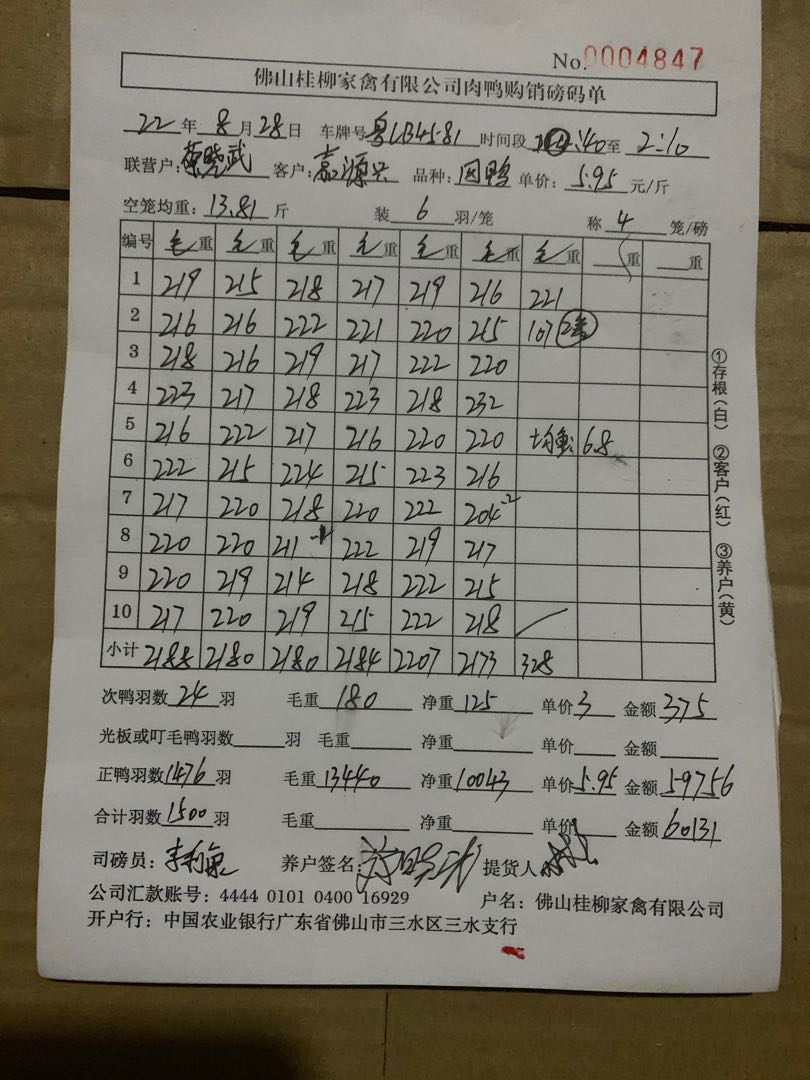 No.0004847
佛山桂柳家禽有限公司肉鸭购销磅码单
22年8月28日 车牌号粤LB4581 时间段:40至2:10
联营户:蔡晓武 客户:嘉源兴 品种:因鸭 单价:5.95元/斤
空笼均重:13.81斤 装6羽/笼 称4笼/磅
编号 毛重 毛重 毛重 毛重 毛重 毛重 毛重 重 重
1 219 215 218 217 219 216 221
2 216 216 222 221 220 215 107
3 218 216 219 217 222 220
4 223 217 218 223 218 232
5 216 222 217 216 220 220 均重:6.8
6 222 215 224 215 223 216
7 217 220 218 220 222 204-2
8 220 220 211 222 219 217
9 220 219 214 218 222 215
10 217 220 219 215 222 218
小计 2188 2180 2180 2184 2207 2173 328
①存根(白) ②客户(红) ③养户(黄)
次鸭羽数24羽 毛重180 净重125 单价3 金额375
光板或叮毛鸭羽数 羽 毛重 净重 单价 金额
正鸭羽数1476羽 毛重13440 净重10043 单价5.95 金额59756
合计羽数1500羽 毛重 净重 单价 金额60131
司磅员: 养户签名: 提货人
公司汇款账号:4444 0101 0400 16929 户名:佛山桂柳家禽有限公司
开户行:中国农业银行广东省佛山市三水区三水支行